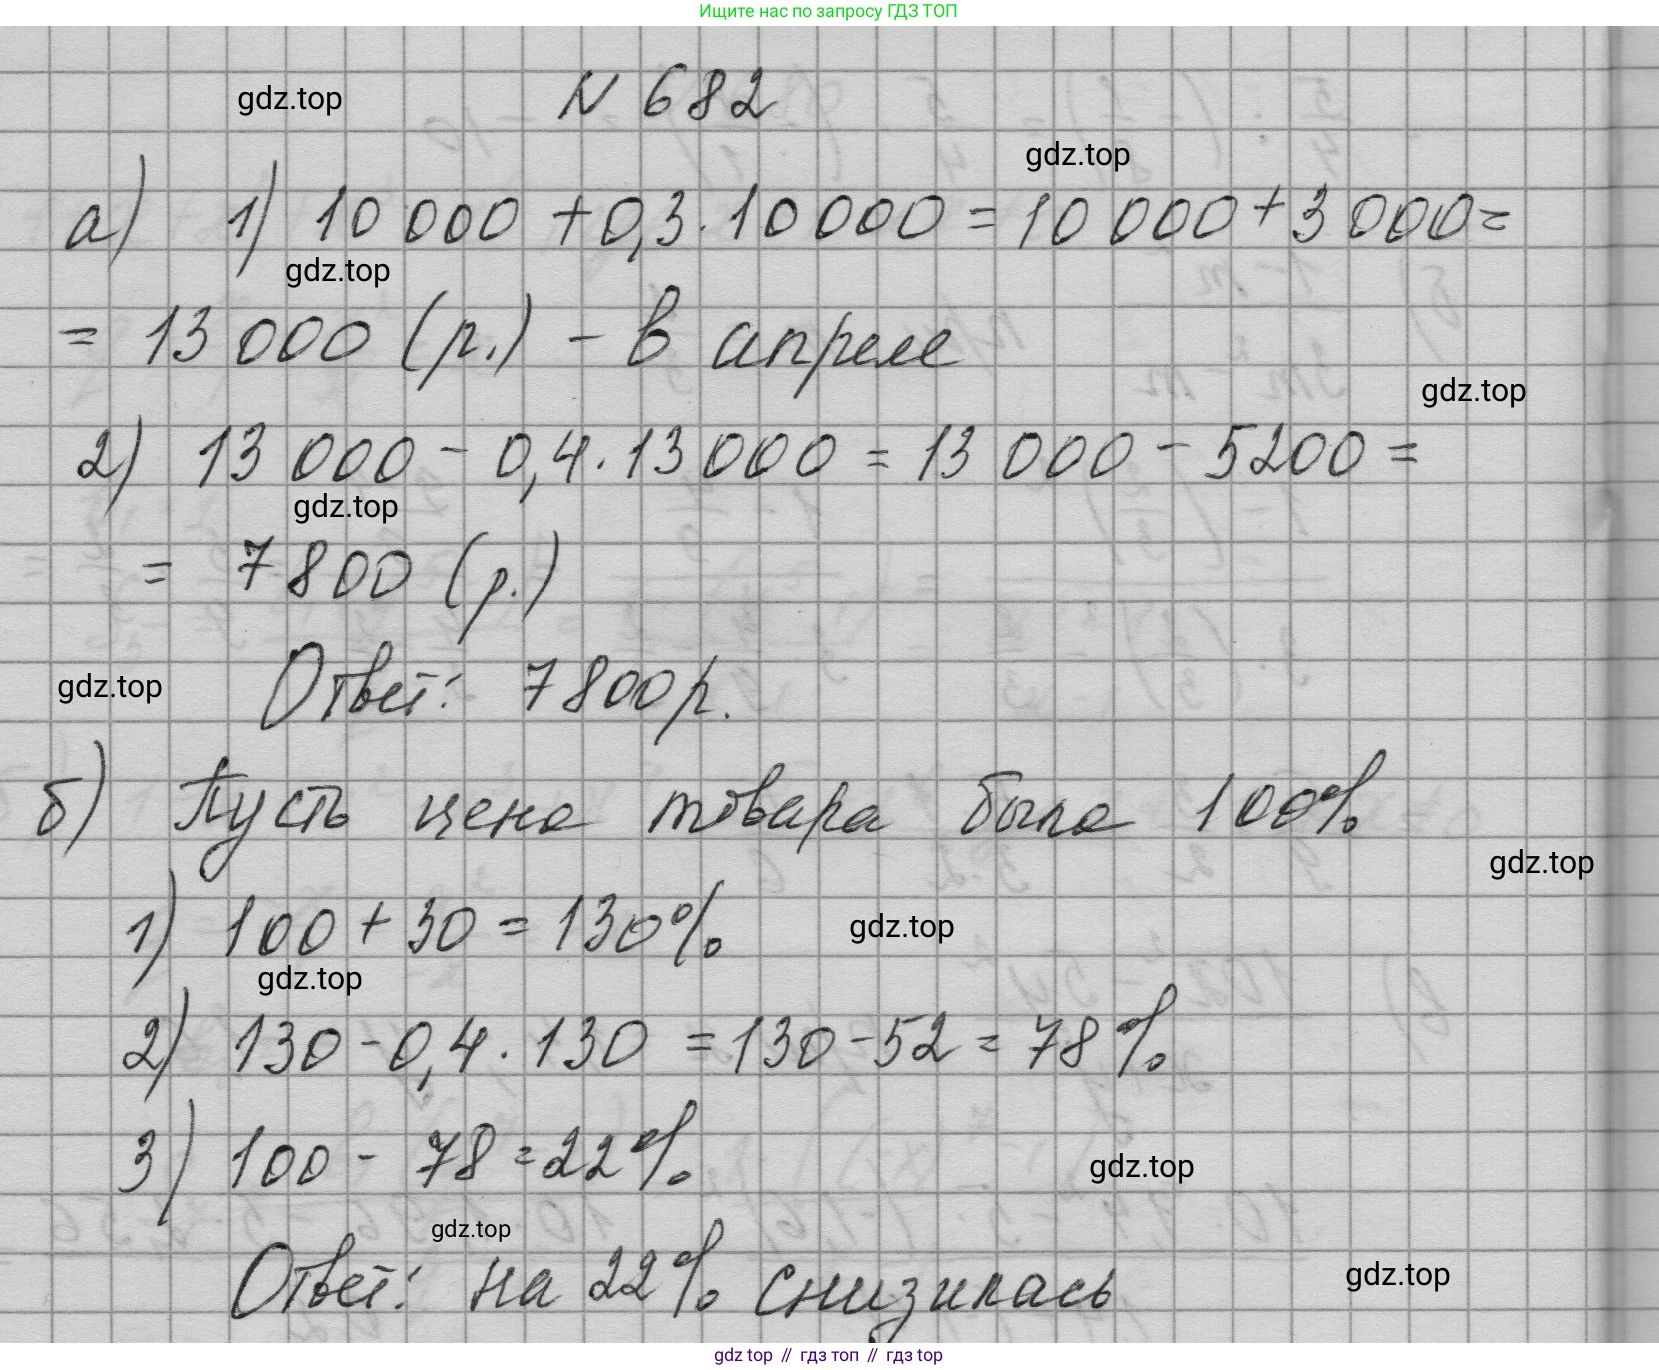 Ищите нас по запросу ГДЗ ТОП
N 682
gdz.top
gdz.top
а) 1) 10 000 + 0,3 · 10 000 = 10 000 + 3 000 =
gdz.top
= 13 000 (р.) - в апреле
gdz.top
2) 13 000 - 0,4 · 13 000 = 13 000 - 5200 =
gdz.top
= 7800 (р.)
gdz.top
Ответ: 7800р.
б) Пусть цена товара была 100%
gdz.top
1) 100 + 30 = 130%
gdz.top
gdz.top
2) 130 - 0,4 · 130 = 130 - 52 = 78%
3) 100 - 78 = 22%
gdz.top
gdz.top
Ответ: на 22% снизилась
gdz.top
gdz top // гдз топ // gdz top